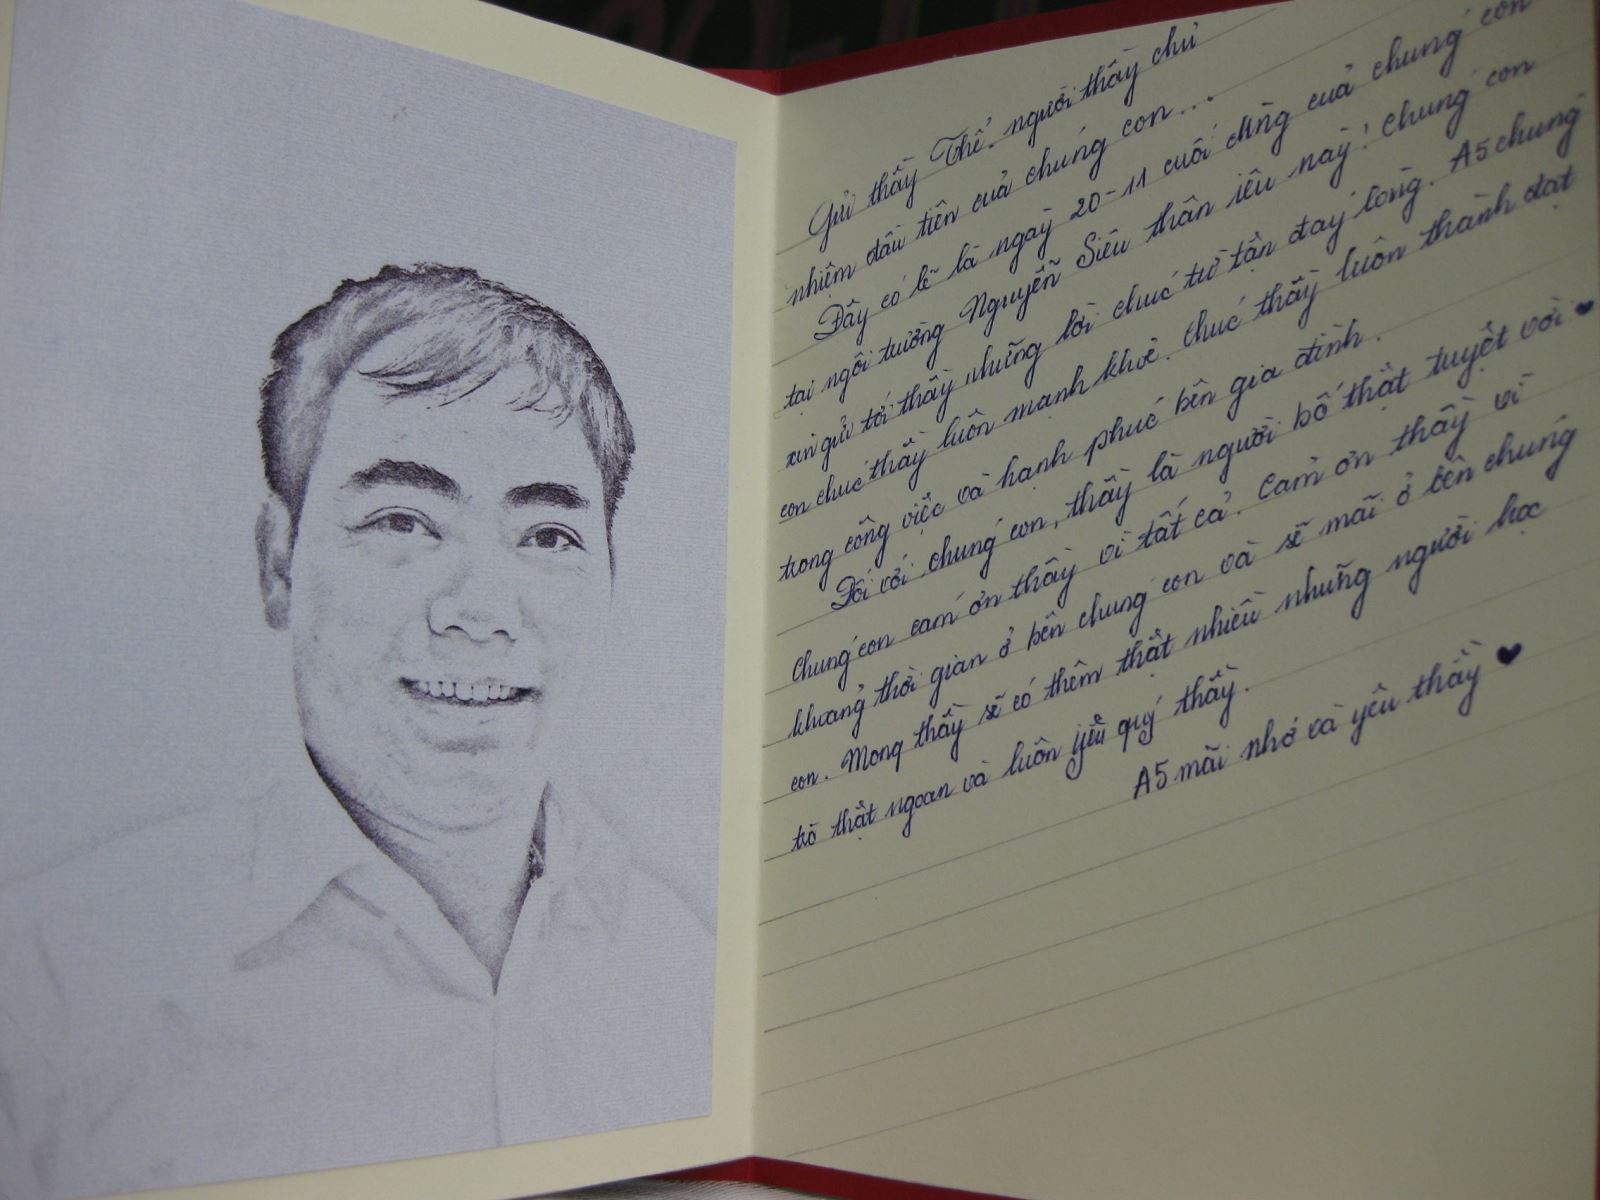 Gửi thầy Thể, người thầy chủ
nhiệm đầu tiên của chúng con...
Đây có lẽ là ngày 20-11 cuối cùng của chúng con
tại ngôi trường Nguyễn Siêu thân iêu này! chúng con
xin gửi tới thầy những lời chúc từ tận đáy lòng. A5 chúng
con chúc thầy luôn mạnh khỏe. Chúc thầy luôn thành đạt
trong công việc và hạnh phúc bên gia đình.
Đối với chúng con, thầy là người bố thật tuyệt vời ♥
Chúng con cảm ơn thầy vì tất cả. Cảm ơn thầy vì
khoảng thời gian ở bên chúng con và sẽ mãi ở bên chúng
con. Mong thầy sẽ có thêm thật nhiều những người học
trò thật ngoan và luôn yêu quý thầy.
A5 mãi nhớ và yêu thầy ♥